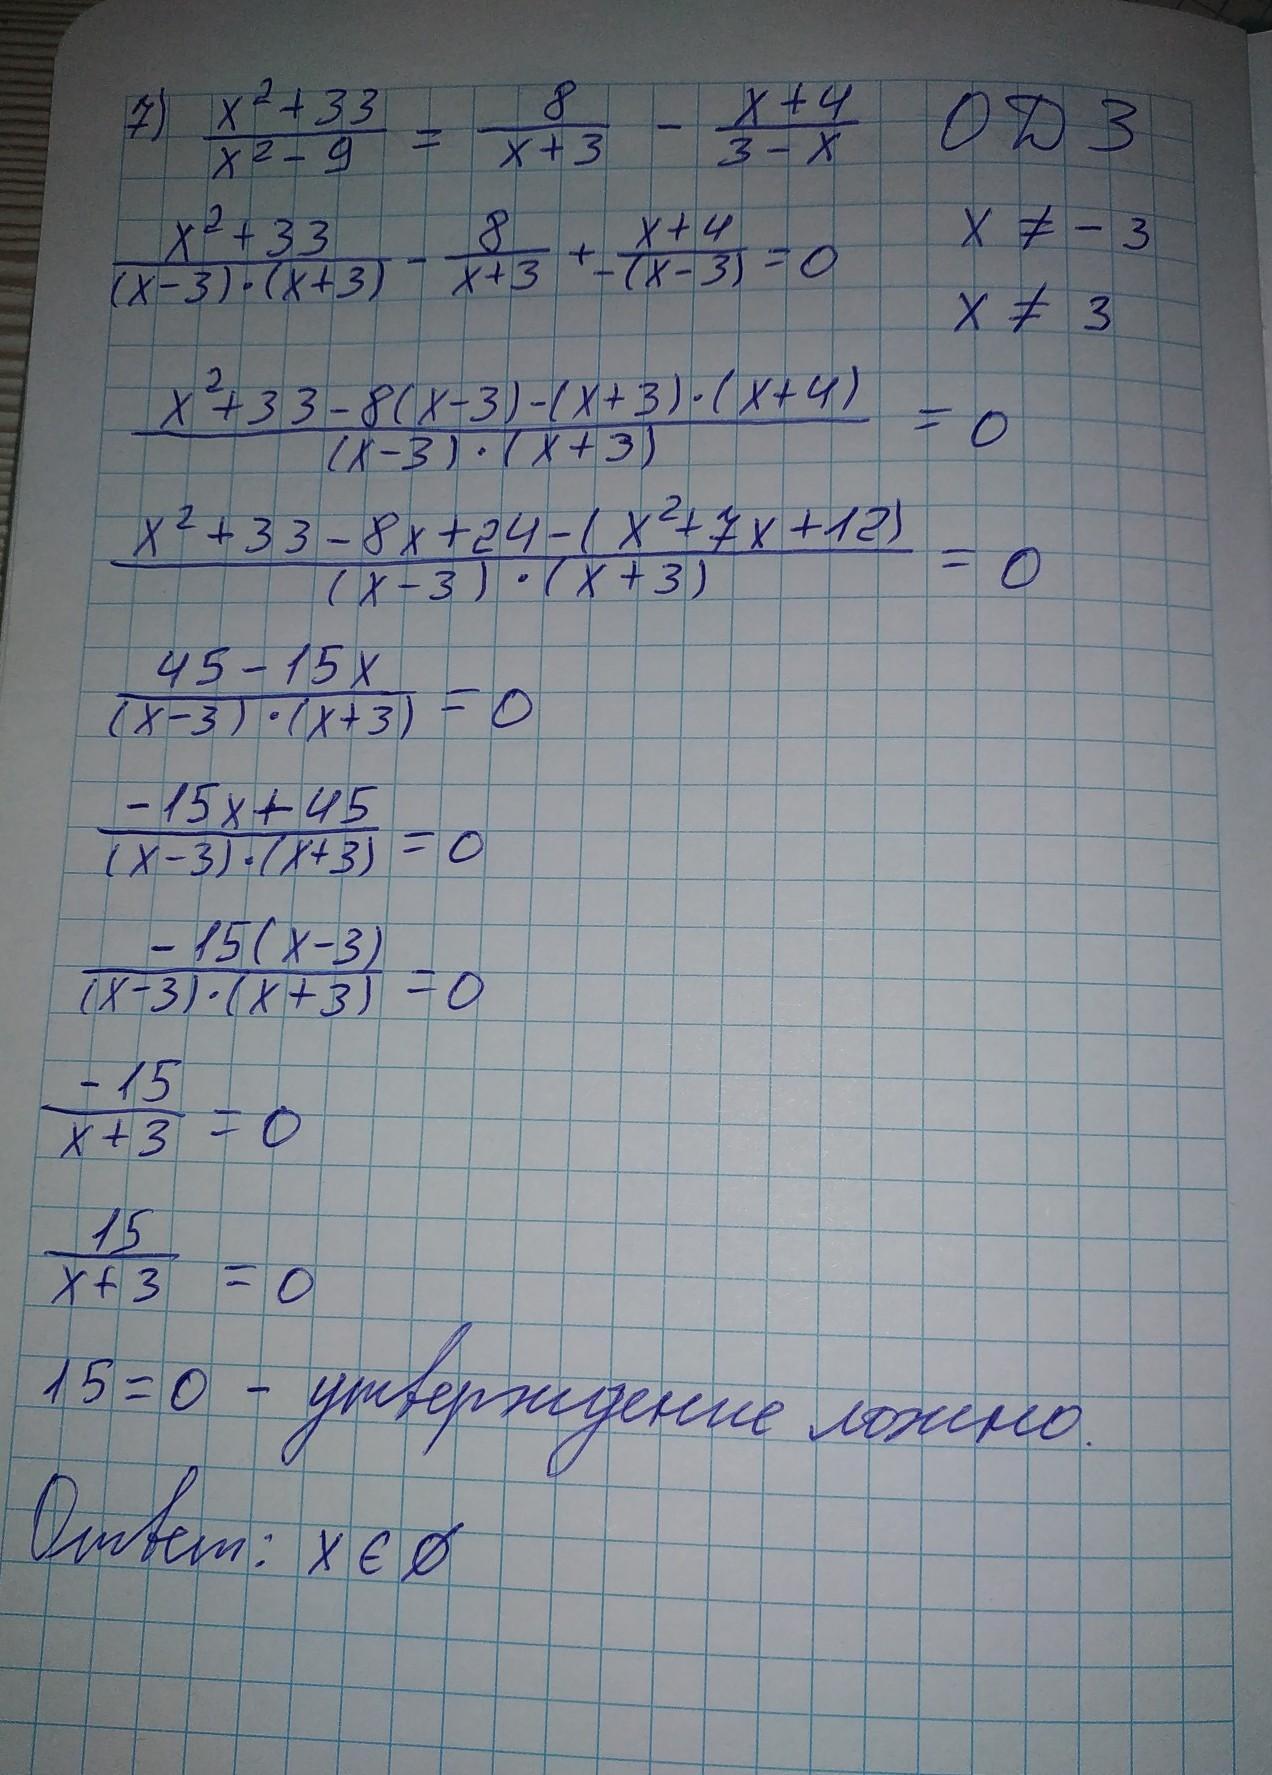 7) (x²+33)/(x²-9) = 8/(x+3) - (x+4)/(3-x) ОДЗ
(x²+33)/((x-3)·(x+3)) - 8/(x+3) + (x+4)/(-(x-3)) = 0 x ≠ -3
x ≠ 3
(x²+33-8(x-3)-(x+3)·(x+4))/((x-3)·(x+3)) = 0
(x²+33-8x+24-(x²+7x+12))/((x-3)·(x+3)) = 0
(45-15x)/((x-3)·(x+3)) = 0
(-15x+45)/((x-3)·(x+3)) = 0
(-15(x-3))/((x-3)·(x+3)) = 0
-15/(x+3) = 0
15/(x+3) = 0
15=0 - утверждение ложно.
Ответ: x ∈ ∅